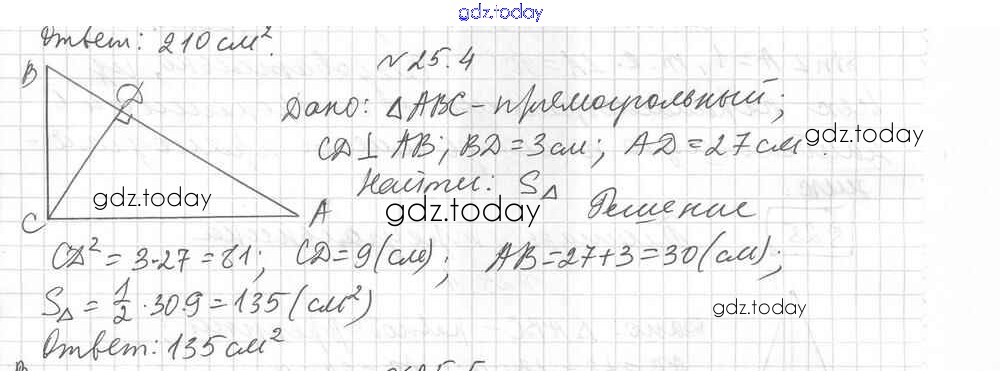 gdz.today
Ответ: 210 см².
№25.4
B
D
Дано: △ABC - прямоугольный;
CD ⊥ AB; BD = 3 см; AD = 27 см.
gdz.today
Найти: S△
gdz.today
gdz.today
C
A
Решение
CD² = 3·27 = 81; CD = 9 (см); AB = 27 + 3 = 30 (см);
S△ = 1/2 · 30·9 = 135 (см²)
gdz.today
Ответ: 135 см²
№25.5